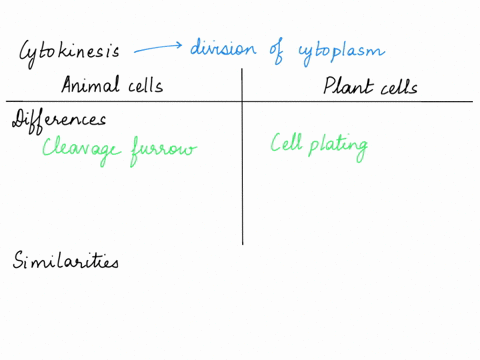 Cytokinesis → division of cytoplasm
Animal cells Plant cells
Differences
Cleavage furrow Cell plating
Similarities